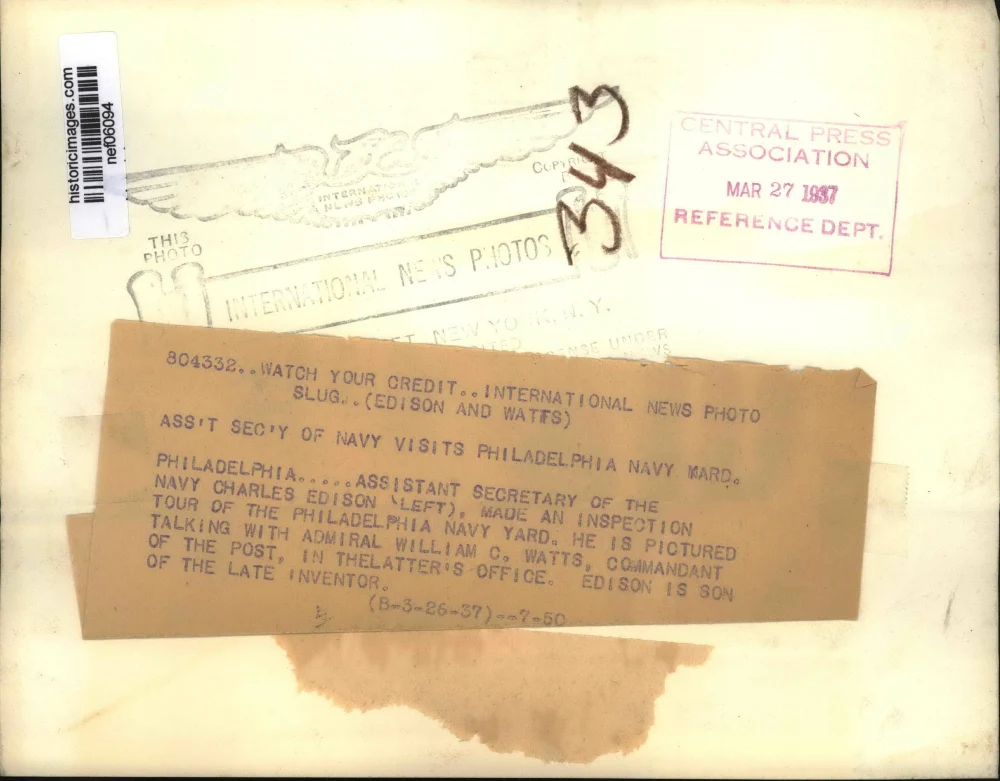 historicimages.com
nef06094
343
COPYRIG
INTERNATIONAL
NEWS PHOTO
THIS
PHOTO
INTERNATIONAL NEWS PHOTOS
NEW YORK, N.Y.
UNDER
CENTRAL PRESS
ASSOCIATION
MAR 27 1937
REFERENCE DEPT.
804332..WATCH YOUR CREDIT..INTERNATIONAL NEWS PHOTO
SLUG..(EDISON AND WATTS)
ASS'T SEC'Y OF NAVY VISITS PHILADELPHIA NAVY WARD.
PHILADELPHIA.....ASSISTANT SECRETARY OF THE
NAVY CHARLES EDISON (LEFT), MADE AN INSPECTION
TOUR OF THE PHILADELPHIA NAVY YARD. HE IS PICTURED
TALKING WITH ADMIRAL WILLIAM C. WATTS, COMMANDANT
OF THE POST, IN THELATTER'S OFFICE. EDISON IS SON
OF THE LATE INVENTOR.
(B-3-26-37)--7-50